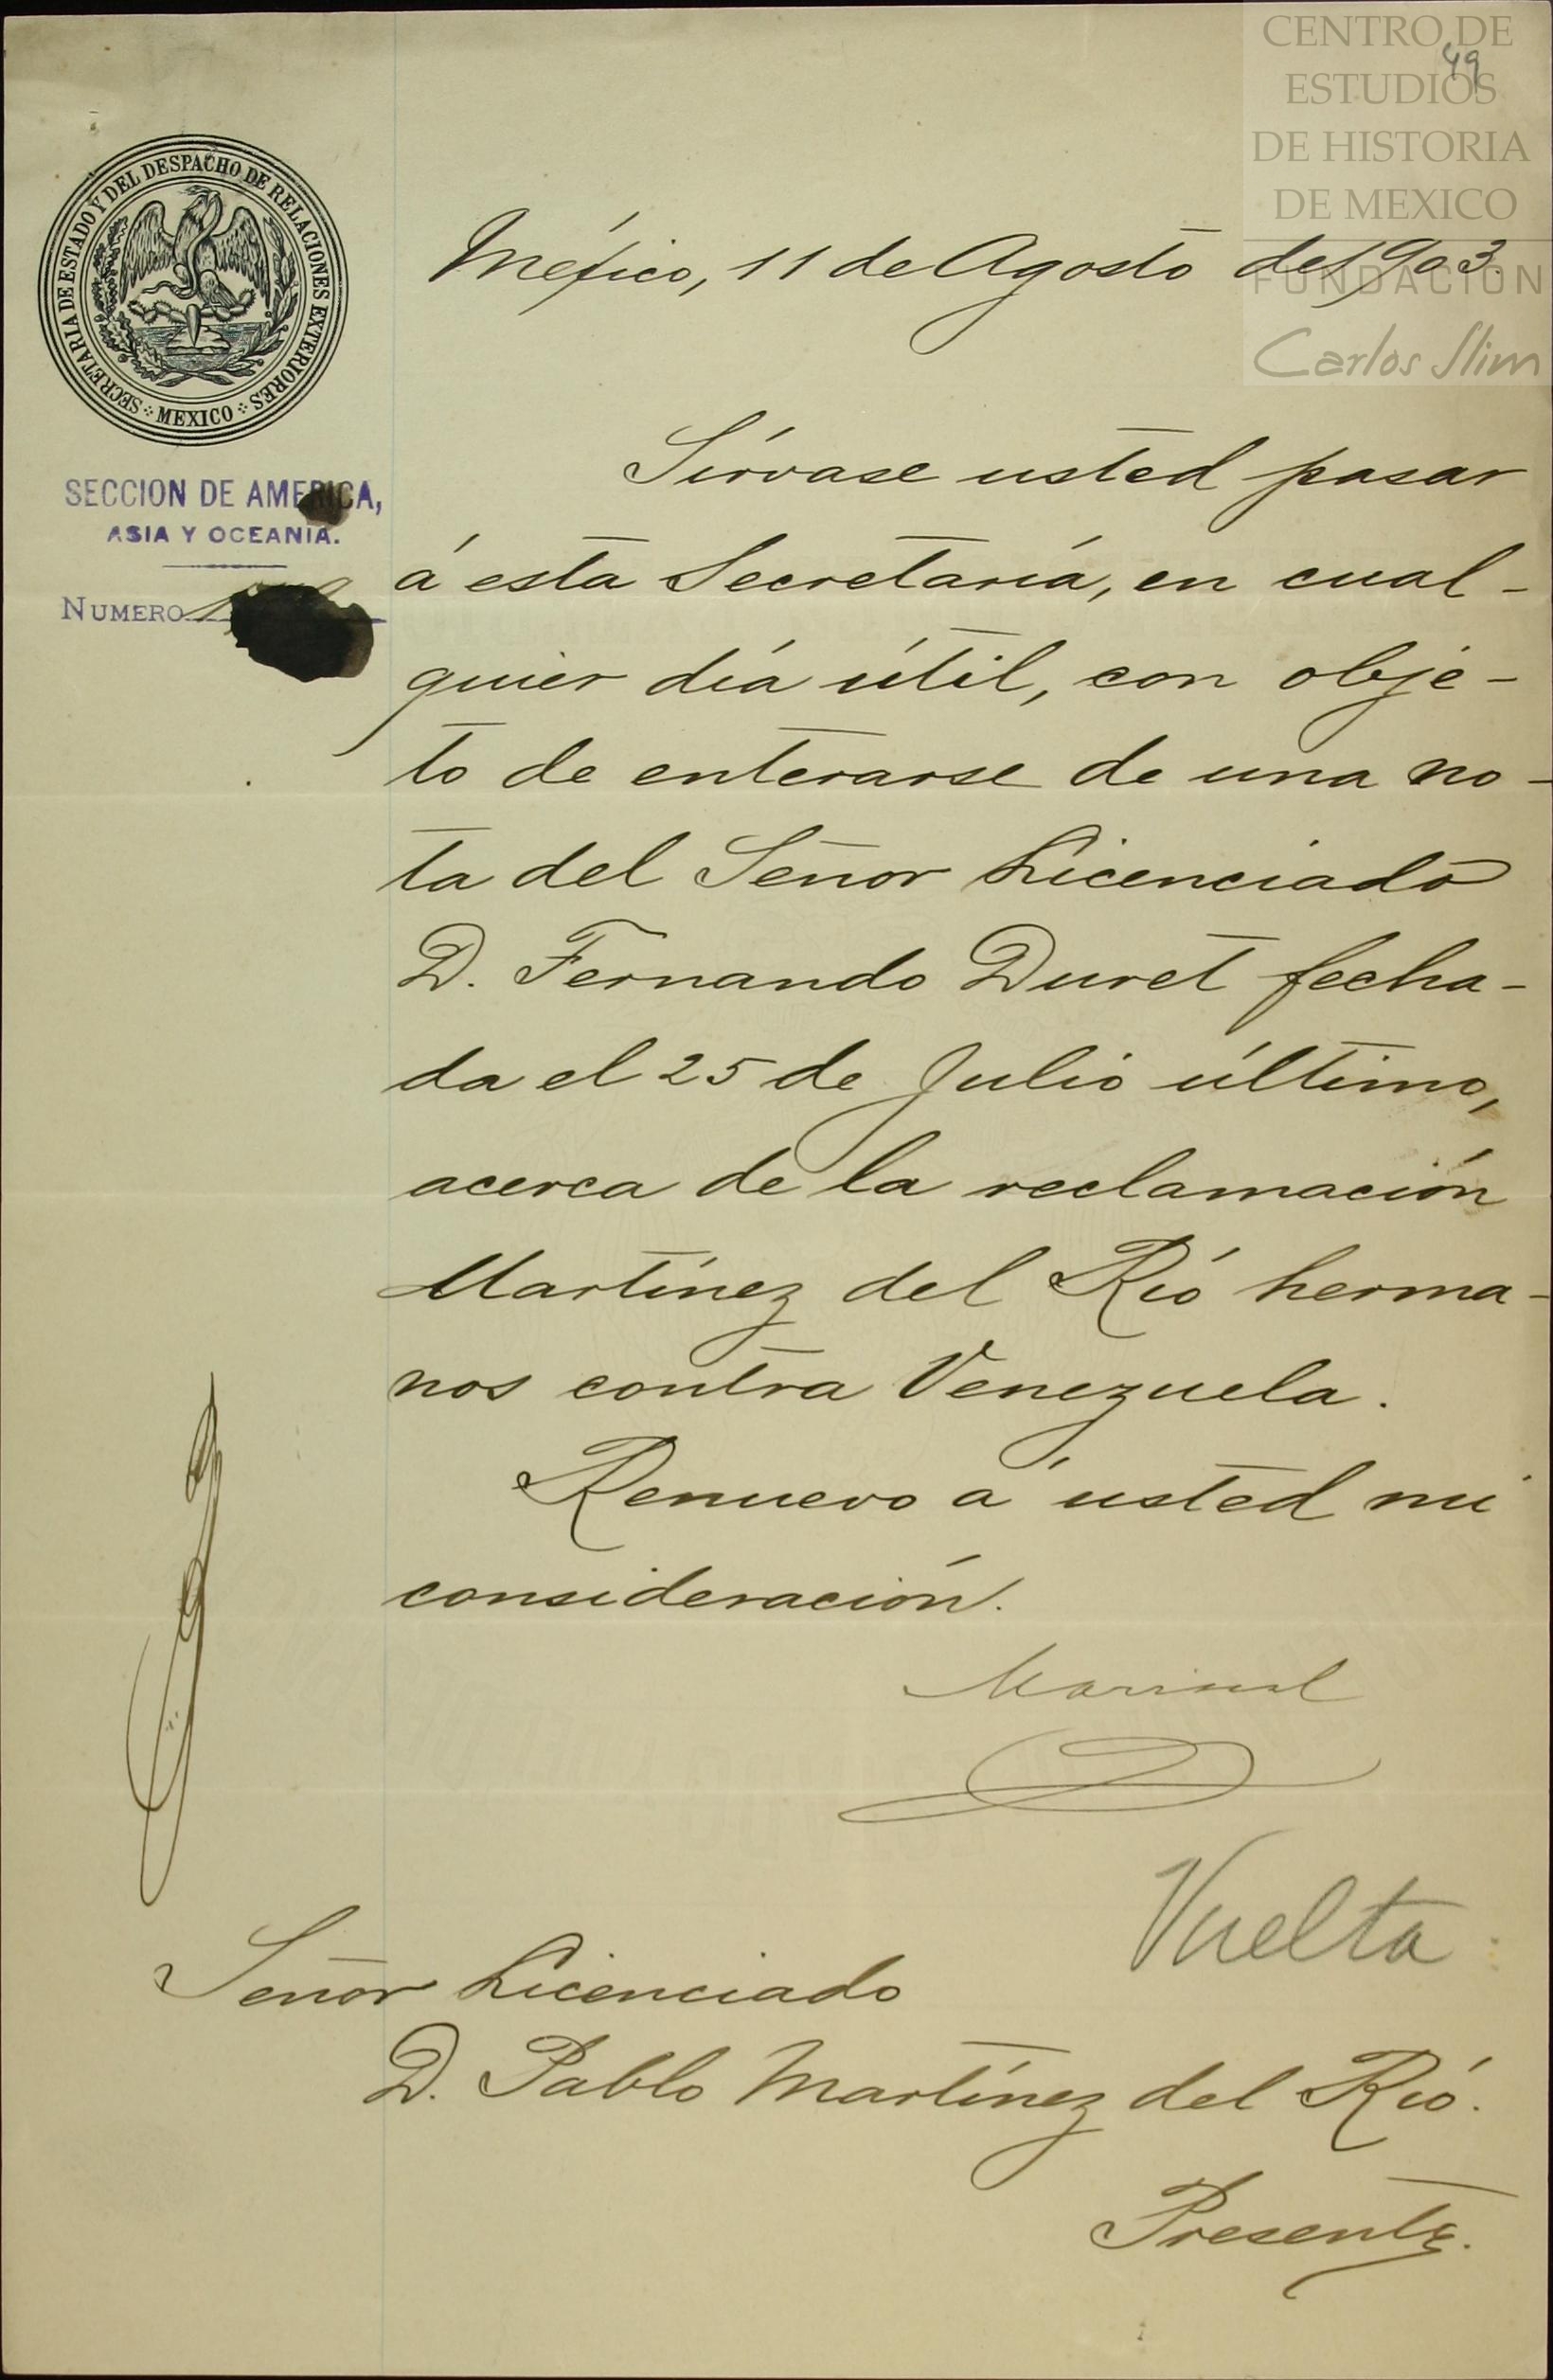 CENTRO DE
ESTUDIOS
DE HISTORIA
DE MEXICO
FUNDACIÓN
Carlos Slim
49
SECRETARIA DE ESTADO Y DEL DESPACHO DE RELACIONES EXTERIORES
MEXICO
SECCION DE AMERICA,
ASIA Y OCEANIA.
NUMERO
México, 11 de Agosto de 1903.
Sírvase usted pasar
á esta Secretaría, en cual-
quier día útil, con obje-
to de enterarse de una no-
ta del Señor Licenciado
D. Fernando Duret fecha-
da el 25 de Julio último,
acerca de la reclamación
Martínez del Río herma-
nos contra Venezuela.
Renuevo á usted mi
consideración.
Mariscal
Vuelta
Señor Licenciado
D. Pablo Martínez del Río.
Presente.